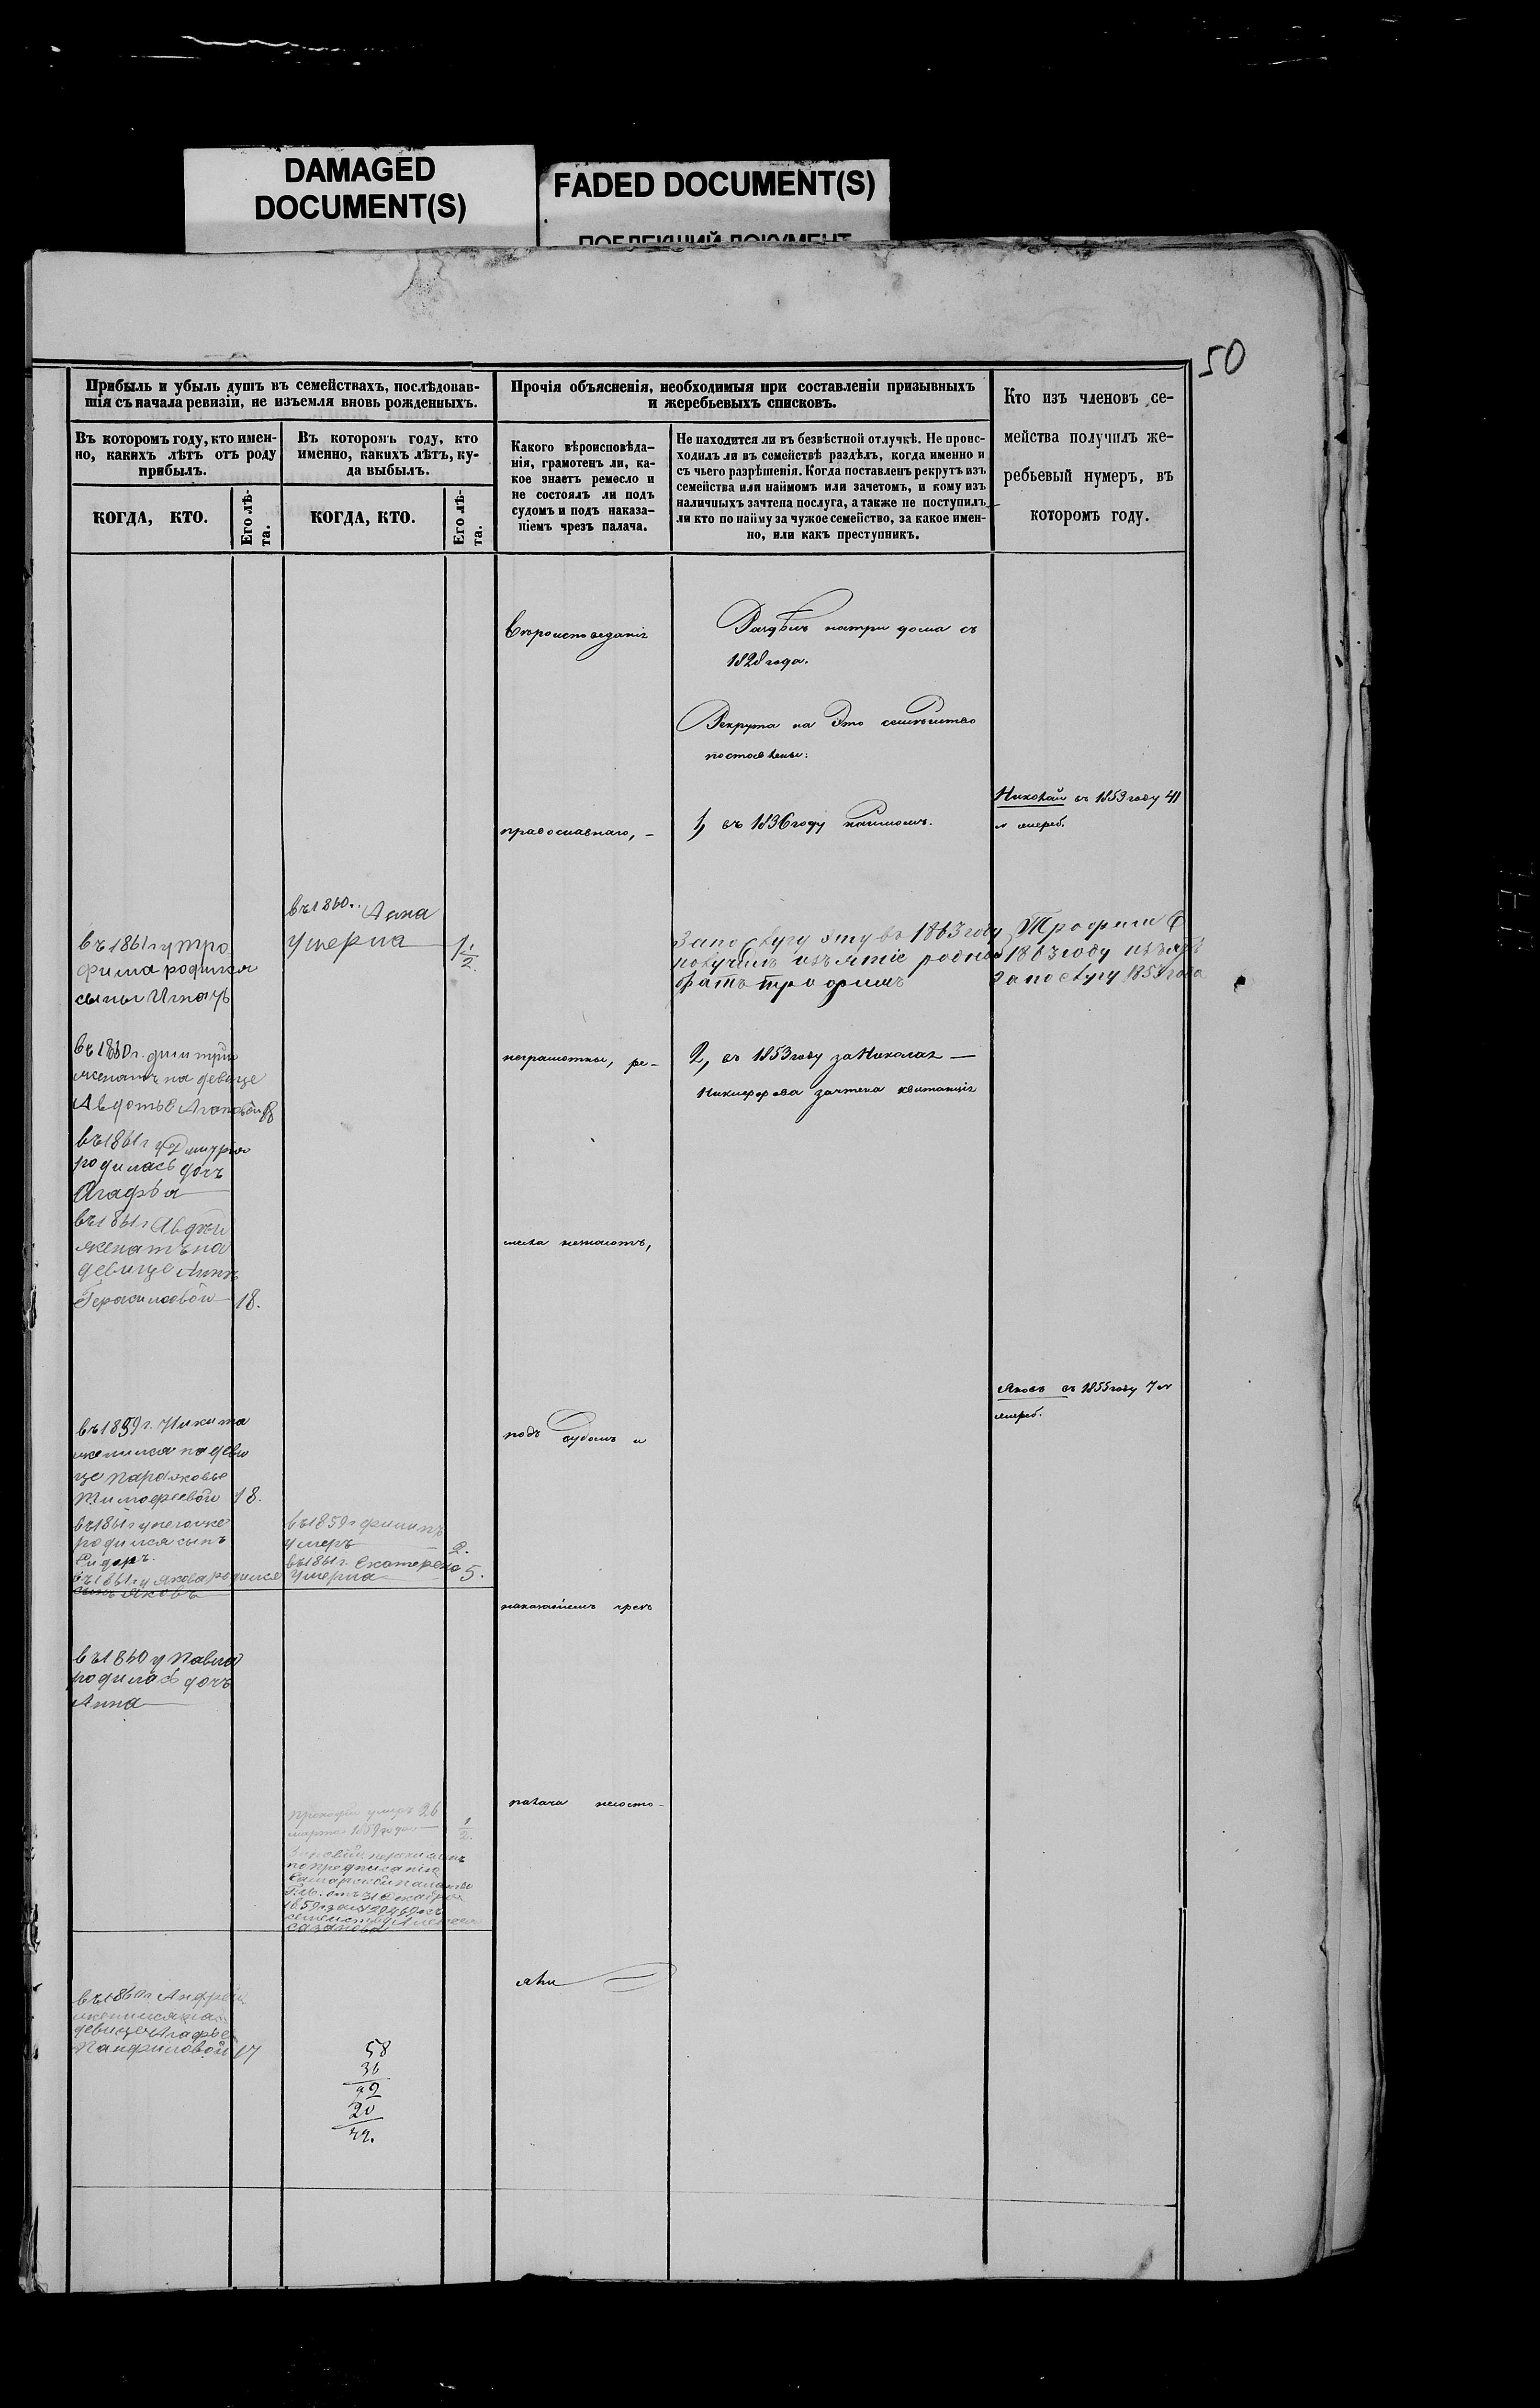 DAMAGED
DOCUMENT(S)
FADED DOCUMENT(S)
ПОБЛЕКШИЙ ДОКУМЕНТ
50
Прибыль и убыль душъ въ семействахъ, послѣдовав-
шія съ начала ревизіи, не изъемля вновь рожденныхъ.
Въ которомъ году, кто имен-
но, какихъ лѣтъ отъ роду
прибылъ.
КОГДА, КТО.
Его лѣ-
та.
Въ которомъ году, кто
именно, какихъ лѣтъ, ку-
да выбылъ.
КОГДА, КТО.
Его лѣ-
та.
Прочія объясненія, необходимыя при составленіи призывныхъ
и жеребьевыхъ списковъ.
Какого вѣроисповѣда-
нія, грамотенъ ли, ка-
кое знаетъ ремесло и
не состоялъ ли подъ
судомъ и подъ наказа-
ніемъ чрезъ палача.
Не находится ли въ безвѣстной отлучкѣ. Не проис-
ходилъ ли въ семействѣ раздѣлъ, когда именно и
съ чьего разрѣшенія. Когда поставленъ рекрутъ изъ
семейства или наймомъ или зачетомъ, и кому изъ
наличныхъ зачтена послуга, а также не поступилъ
ли кто по найму за чужое семейство, за какое имен-
но, или какъ преступникъ.
Кто изъ членовъ се-
мейства получилъ же-
ребьевый нумеръ, въ
которомъ году.
въ 1861 г у Тро
фима родился
сынъ Игнатъ
въ 1860 г. Дмитрій
женатъ на девице
Авдотье Агаповой 18
въ 1861 г у Дмитрія
родилась дочь
Агафья
въ 1861 г Авдей
женатъ на
девице Анне
Герасимовой 18.
въ 1859 г. Никита
женился на деви
це Парасковье
Тимофеевой 18.
въ 1861 г у
родился сынъ
Сидоръ.
въ 1861 г у Якова родился
сынъ Яковъ
въ 1860 у Павла
родилась дочь
Анна
въ 1860 г Андрей
женился на
девице Агафье
Панфиловой 17
въ 1860 г. Анна
умерла 1 1/2.
въ 1859 г Филипъ
умеръ 2.
въ 1861 г. Екатерена
умерла 5.
Прокофій умеръ 26
марта 1859 года 1/2.
по предписанію
Самарской палаты
Г. И. отъ 31 Декабря
58
36
92
20
72.
Вѣроисповеданія
православнаго, —
неграмотны, ре-
месла незнаютъ,
подъ судомъ и
наказаніемъ чрезъ
палача несосто-
яли
Раздѣлъ натри дома съ
1828 года.
Рекрута на Это семейство
поставлены:
1, въ 1836 году наймомъ.
Запослугу эту въ 1863 году
получилъ изъятіе родной
братъ Трофимъ
2, въ 1853 году за Николая —
Никифорова зачтена квитанція
Николай въ 1853 году 41
№ жереб.
Трофимъ въ
1863 году изъятъ
за послугу 1853 года
Яковъ въ 1855 году 7 №
жереб.